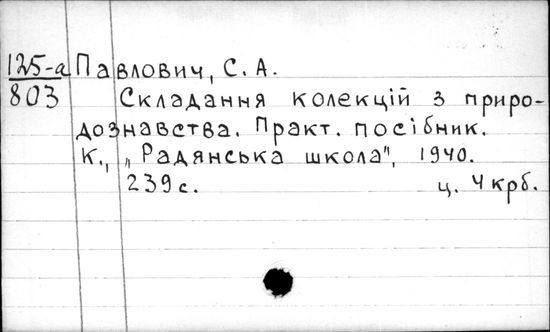 125-а Павлович, С. А.
803 Складання колекцій з приро-
дознавства. Практ. посібник.
К., „Радянська школа", 1940.
239 с. ц. 4 крб.